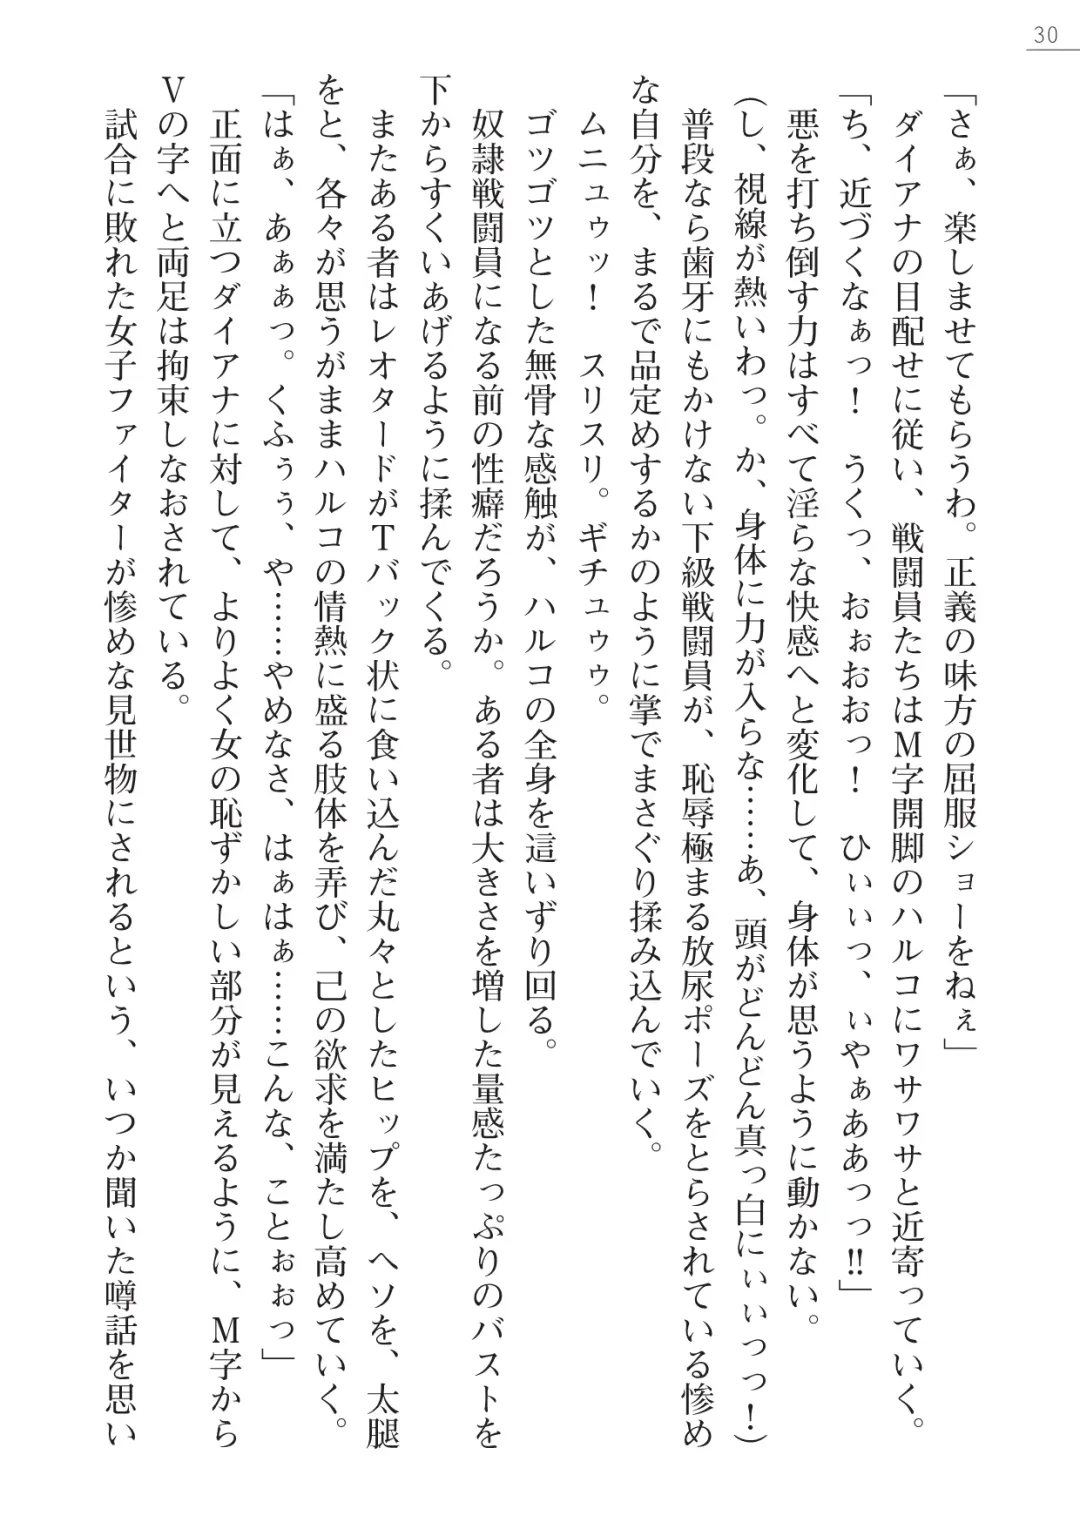 30
「さぁ、楽しませてもらうわ。正義の味方の屈服ショーをねぇ」
ダイアナの目配せに従い、戦闘員たちはM字開脚のハルコにワサワサと近寄っていく。
「ち、近づくなぁっ！　うくっ、おぉおおっ！　ひぃぃっ、ぃやぁああっっ!!」
悪を打ち倒す力はすべて淫らな快感へと変化して、身体が思うように動かない。
(し、視線が熱いわっ。か、身体に力が入らな……あ、頭がどんどん真っ白にぃぃっっ！)
普段なら歯牙にもかけない下級戦闘員が、恥辱極まる放尿ポーズをとらされている惨め
な自分を、まるで品定めするかのように掌でまさぐり揉み込んでいく。
ムニュゥッ！　スリスリ。ギチュゥゥ。
ゴツゴツとした無骨な感触が、ハルコの全身を這いずり回る。
奴隷戦闘員になる前の性癖だろうか。ある者は大きさを増した量感たっぷりのバストを
下からすくいあげるように揉んでくる。
またある者はレオタードがTバック状に食い込んだ丸々としたヒップを、ヘソを、太腿
をと、各々が思うがままハルコの情熱に盛る肢体を弄び、己の欲求を満たし高めていく。
「はぁ、あぁぁっ。くふぅぅ、や……やめなさ、はぁはぁ……こんな、ことぉぉっ」
正面に立つダイアナに対して、よりよく女の恥ずかしい部分が見えるように、M字から
Vの字へと両足は拘束しなおされている。
試合に敗れた女子ファイターが惨めな見世物にされるという、いつか聞いた噂話を思い